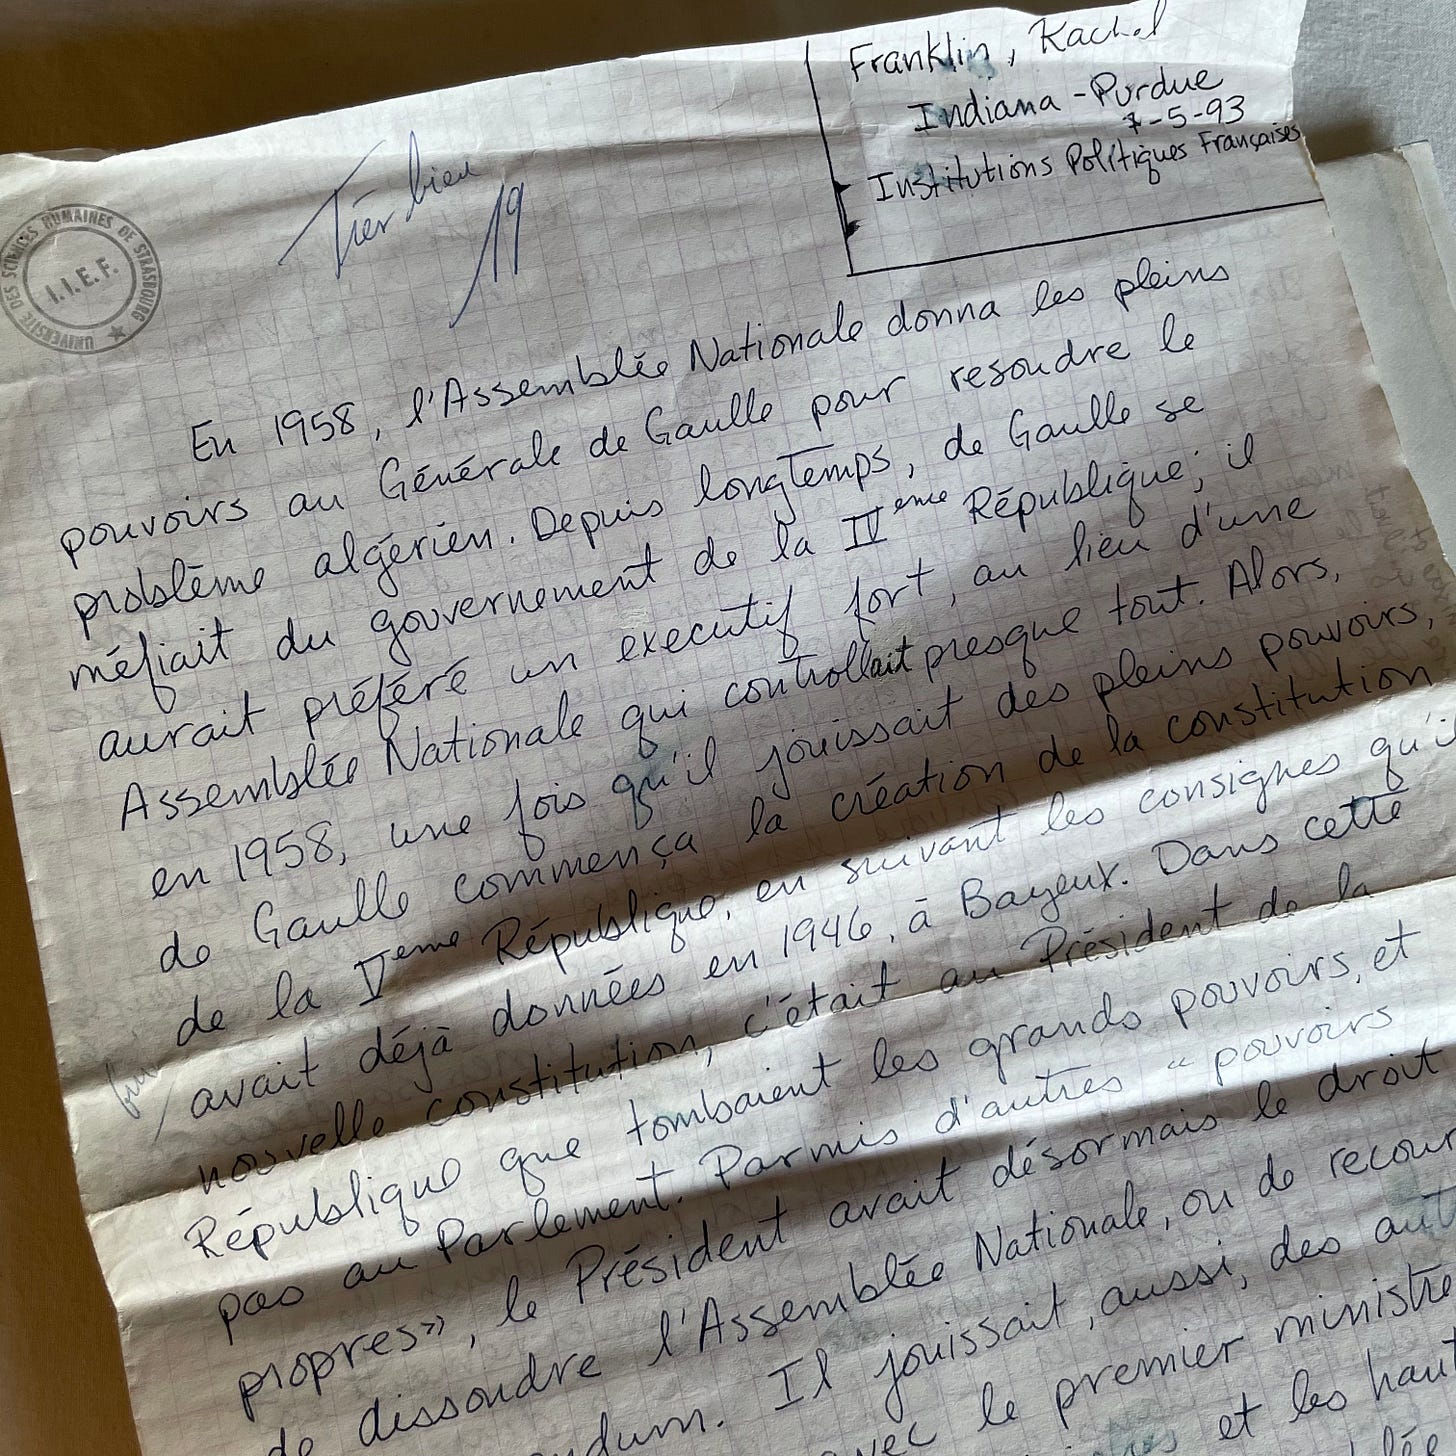 Franklin, Rachel
Indiana - Purdue
7-5-93
Institutions Politiques Françaises
Très bien
19
UNIVERSITÉ DES SCIENCES HUMAINES DE STRASBOURG
I.I.E.F.
En 1958, l'Assemblée Nationale donna les pleins
pouvoirs au Générale de Gaulle pour resoudre le
problème algérien. Depuis longtemps, de Gaulle se
méfiait du gouvernement de la IVeme République; il
aurait préféré un executif fort, au lieu d'une
Assemblée Nationale qui controllait presque tout. Alors,
en 1958, une fois qu'il jouissait des pleins pouvoirs,
de Gaulle commença la création de la constitution
de la Veme République, en suivant les consignes qu'il
avait déjà données en 1946, à Bayeux. Dans cette
nouvelle constitution, c'était au Président de la
République que tombaient les grands pouvoirs, et
pas au Parlement. Parmis d'autres « pouvoirs
propres », le Président avait désormais le droit
de dissoudre l'Assemblée Nationale, ou de recour
Il jouissait, aussi, des aut
avec le premier ministre
et les haut